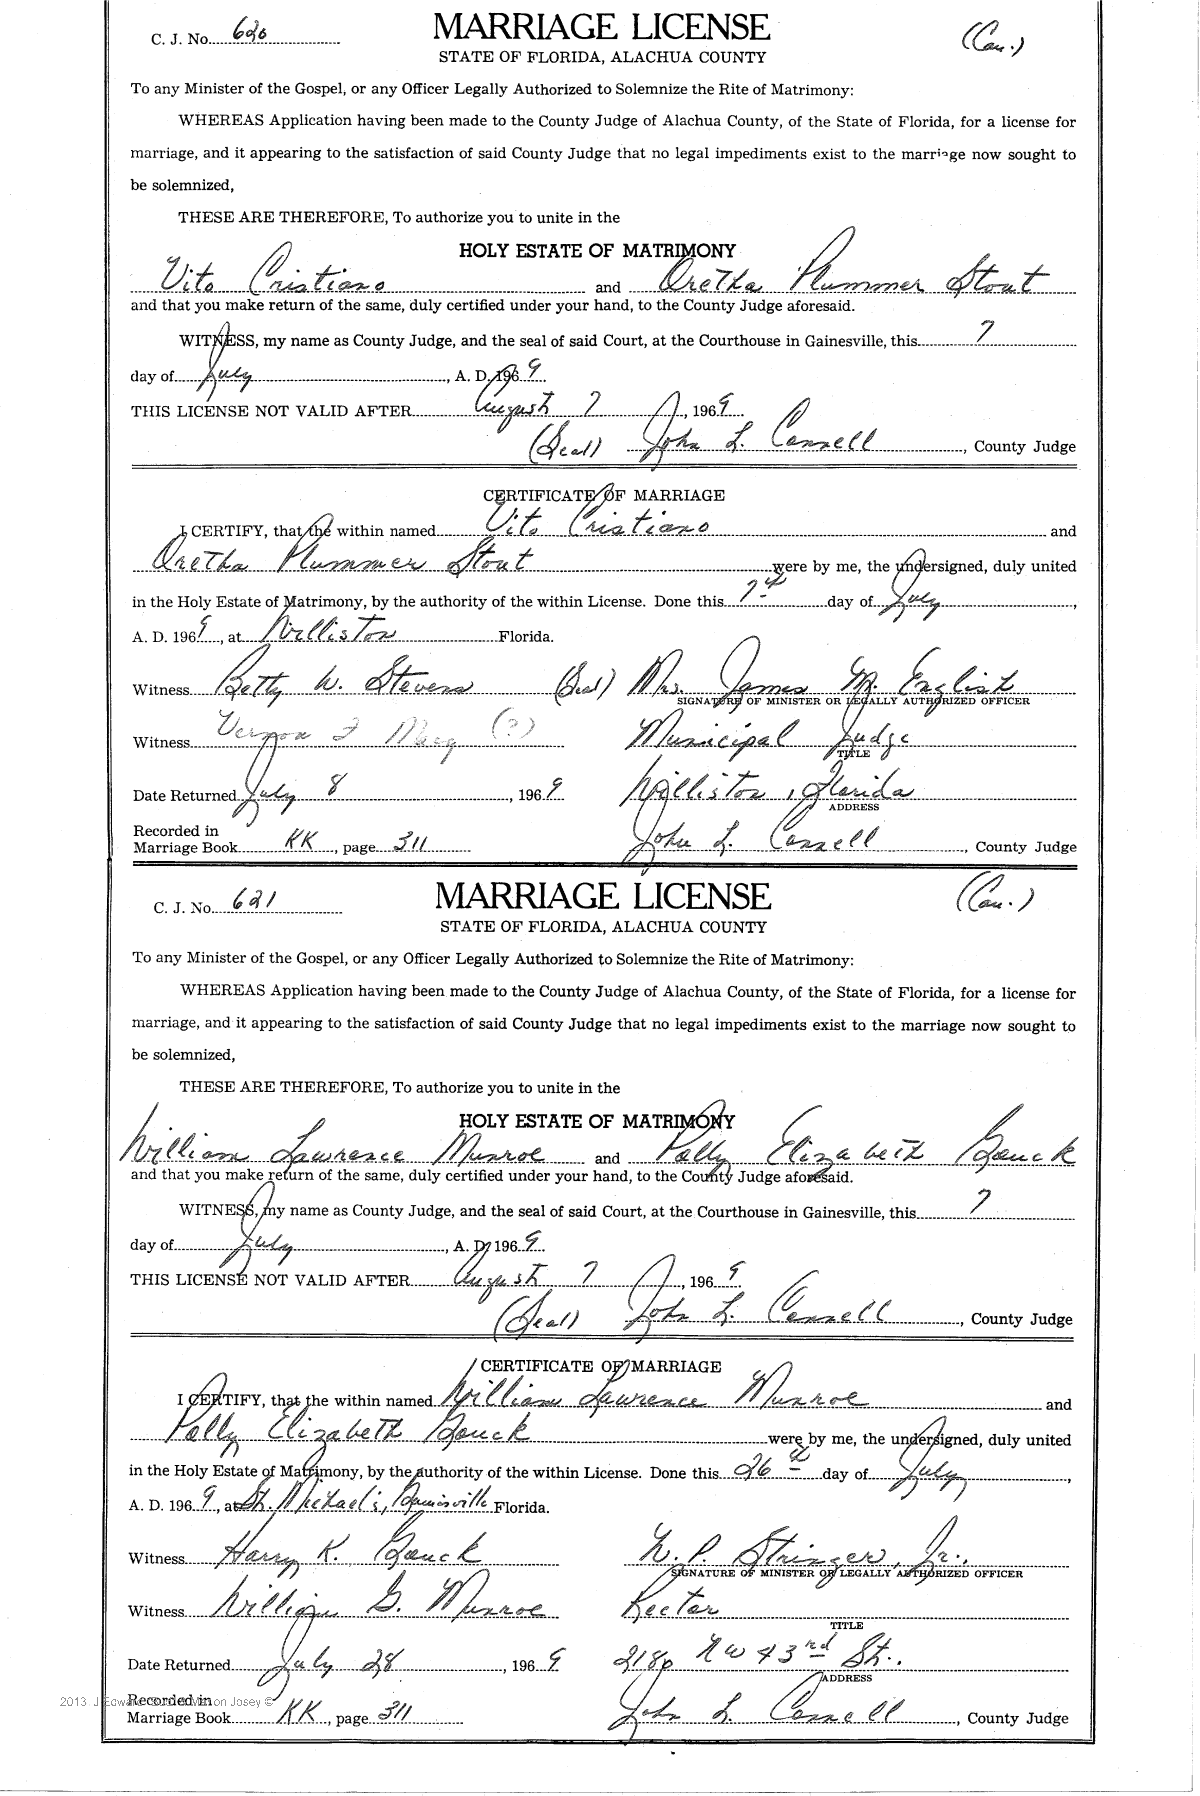 C. J. No. 620
MARRIAGE LICENSE
(Cau.)
STATE OF FLORIDA, ALACHUA COUNTY
To any Minister of the Gospel, or any Officer Legally Authorized to Solemnize the Rite of Matrimony:
WHEREAS Application having been made to the County Judge of Alachua County, of the State of Florida, for a license for
marriage, and it appearing to the satisfaction of said County Judge that no legal impediments exist to the marriage now sought to
be solemnized,
THESE ARE THEREFORE, To authorize you to unite in the
HOLY ESTATE OF MATRIMONY
Vito Cristiano and Oretha Plummer Stout
and that you make return of the same, duly certified under your hand, to the County Judge aforesaid.
WITNESS, my name as County Judge, and the seal of said Court, at the Courthouse in Gainesville, this 7
day of July, A. D. 1969
THIS LICENSE NOT VALID AFTER August 7, 1969
(Seal) John L. Connell, County Judge
CERTIFICATE OF MARRIAGE
I CERTIFY, that the within named Vito Cristiano and
Oretha Plummer Stout were by me, the undersigned, duly united
in the Holy Estate of Matrimony, by the authority of the within License. Done this 7th day of July,
A. D. 1969, at Williston Florida.
Witness Betty W. Stevens (Seal) Mrs. James M. English
SIGNATURE OF MINISTER OR LEGALLY AUTHORIZED OFFICER
Witness Vernon F (?) Municipal Judge
TITLE
Date Returned July 8, 1969 Williston, Florida
ADDRESS
Recorded in
Marriage Book KK, page 311 John L. Connell, County Judge
C. J. No. 621
MARRIAGE LICENSE
(Cau.)
STATE OF FLORIDA, ALACHUA COUNTY
To any Minister of the Gospel, or any Officer Legally Authorized to Solemnize the Rite of Matrimony:
WHEREAS Application having been made to the County Judge of Alachua County, of the State of Florida, for a license for
marriage, and it appearing to the satisfaction of said County Judge that no legal impediments exist to the marriage now sought to
be solemnized,
THESE ARE THEREFORE, To authorize you to unite in the
HOLY ESTATE OF MATRIMONY
William Lawrence Munroe and Polly Elizabeth Gouck
and that you make return of the same, duly certified under your hand, to the County Judge aforesaid.
WITNESS, my name as County Judge, and the seal of said Court, at the Courthouse in Gainesville, this 7
day of July, A. D. 1969
THIS LICENSE NOT VALID AFTER August 7, 1969
(Seal) John L. Connell, County Judge
CERTIFICATE OF MARRIAGE
I CERTIFY, that the within named William Lawrence Munroe and
Polly Elizabeth Gouck were by me, the undersigned, duly united
in the Holy Estate of Matrimony, by the authority of the within License. Done this 26th day of July,
A. D. 1969, at St. Michael's, Gainesville Florida.
Witness Harry K. Gouck N. P. Stringer, Jr.,
SIGNATURE OF MINISTER OR LEGALLY AUTHORIZED OFFICER
Witness William G. Munroe Rector
TITLE
Date Returned July 28, 1969 2180 NW 43rd St.
ADDRESS
Recorded in
Marriage Book KK, page 311 John L. Connell, County Judge
2013 Josey ©